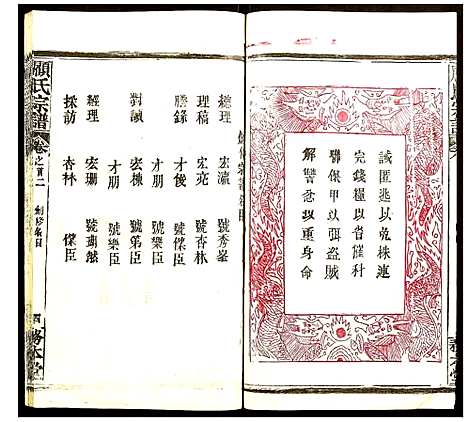 誡匿逃以免株連
完錢糧以省催科
聯保甲以弭盜賊
解讐忿以重身命
總理 宏瀛 號秀峯
理稿 宏堯 號杏林
謄錄 才俊 號傑臣
才朋 號樂臣
對讀 宏棟 號弟臣
才朋 號樂臣
經理 宏珊
採訪 杏林 傑臣
顧氏宗譜
卷之首二
四
務本堂